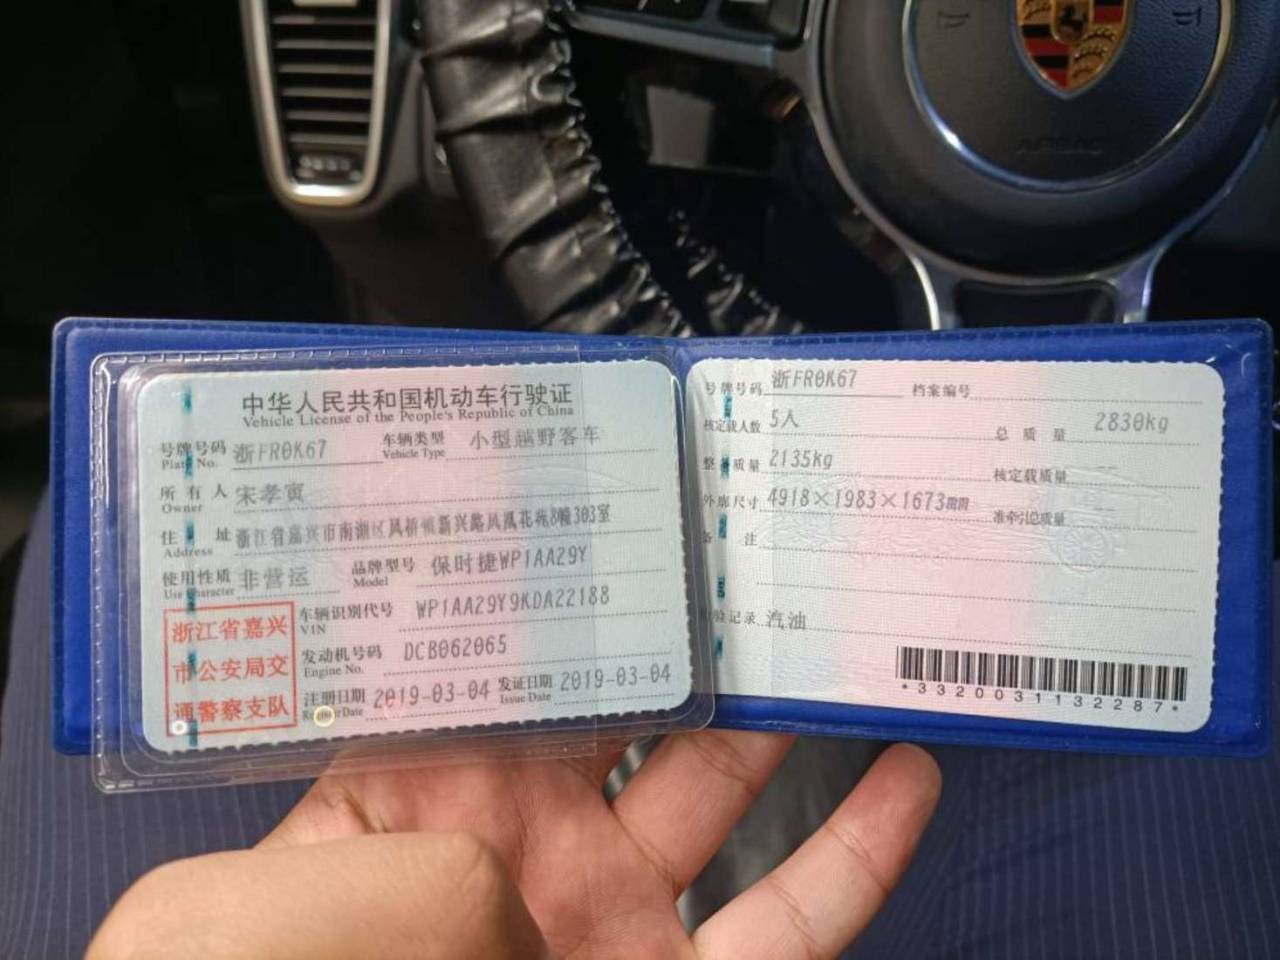 中华人民共和国机动车行驶证
Vehicle License of the People's Republic of China
号牌号码 浙FR0K67 车辆类型 小型越野客车
Plate No. Vehicle Type
所有人 宋孝寅
Owner
住址 浙江省嘉兴市南湖区凤桥镇新兴路凤凰花苑8幢303室
Address
使用性质 非营运 品牌型号 保时捷WP1AA29Y
Use Character Model
浙江省嘉兴
市公安局交
通警察支队
车辆识别代号 WP1AA29Y9KDA22188
VIN
发动机号码 DCB062065
Engine No.
注册日期 2019-03-04 发证日期 2019-03-04
Register Date Issue Date
号牌号码 浙FR0K67 档案编号
核定载人数 5人 总质量 2830kg
整备质量 2135kg 核定载质量 --
外廓尺寸 4918×1983×1673mm 准牵引总质量 --
备注
检验记录 汽油
*3320031132287*